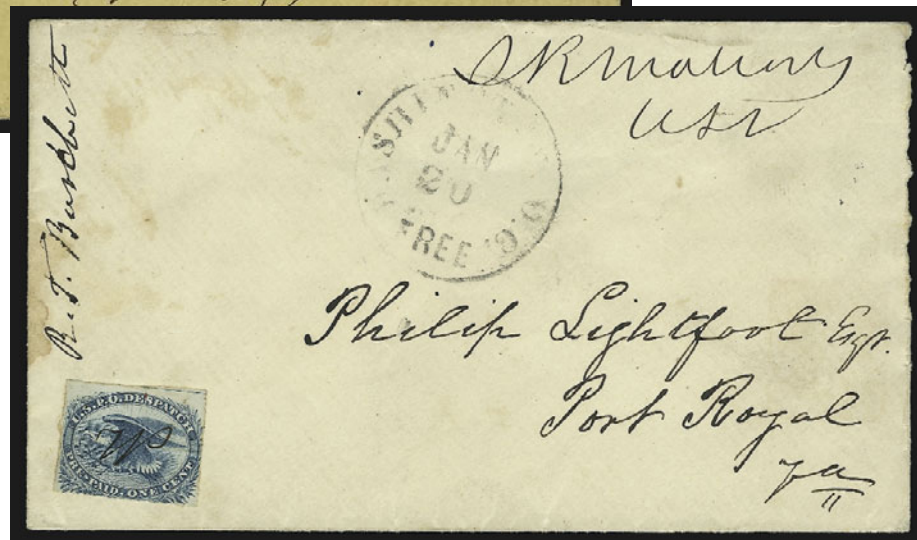 SRMallory
USS
WASHINGTON
JAN
20
FREE
R. T. Burchett
Philip Lightfoot Esqr.
Port Royal
Va
U.S.P.O. DESPATCH
PRE-PAID. ONE CENT.